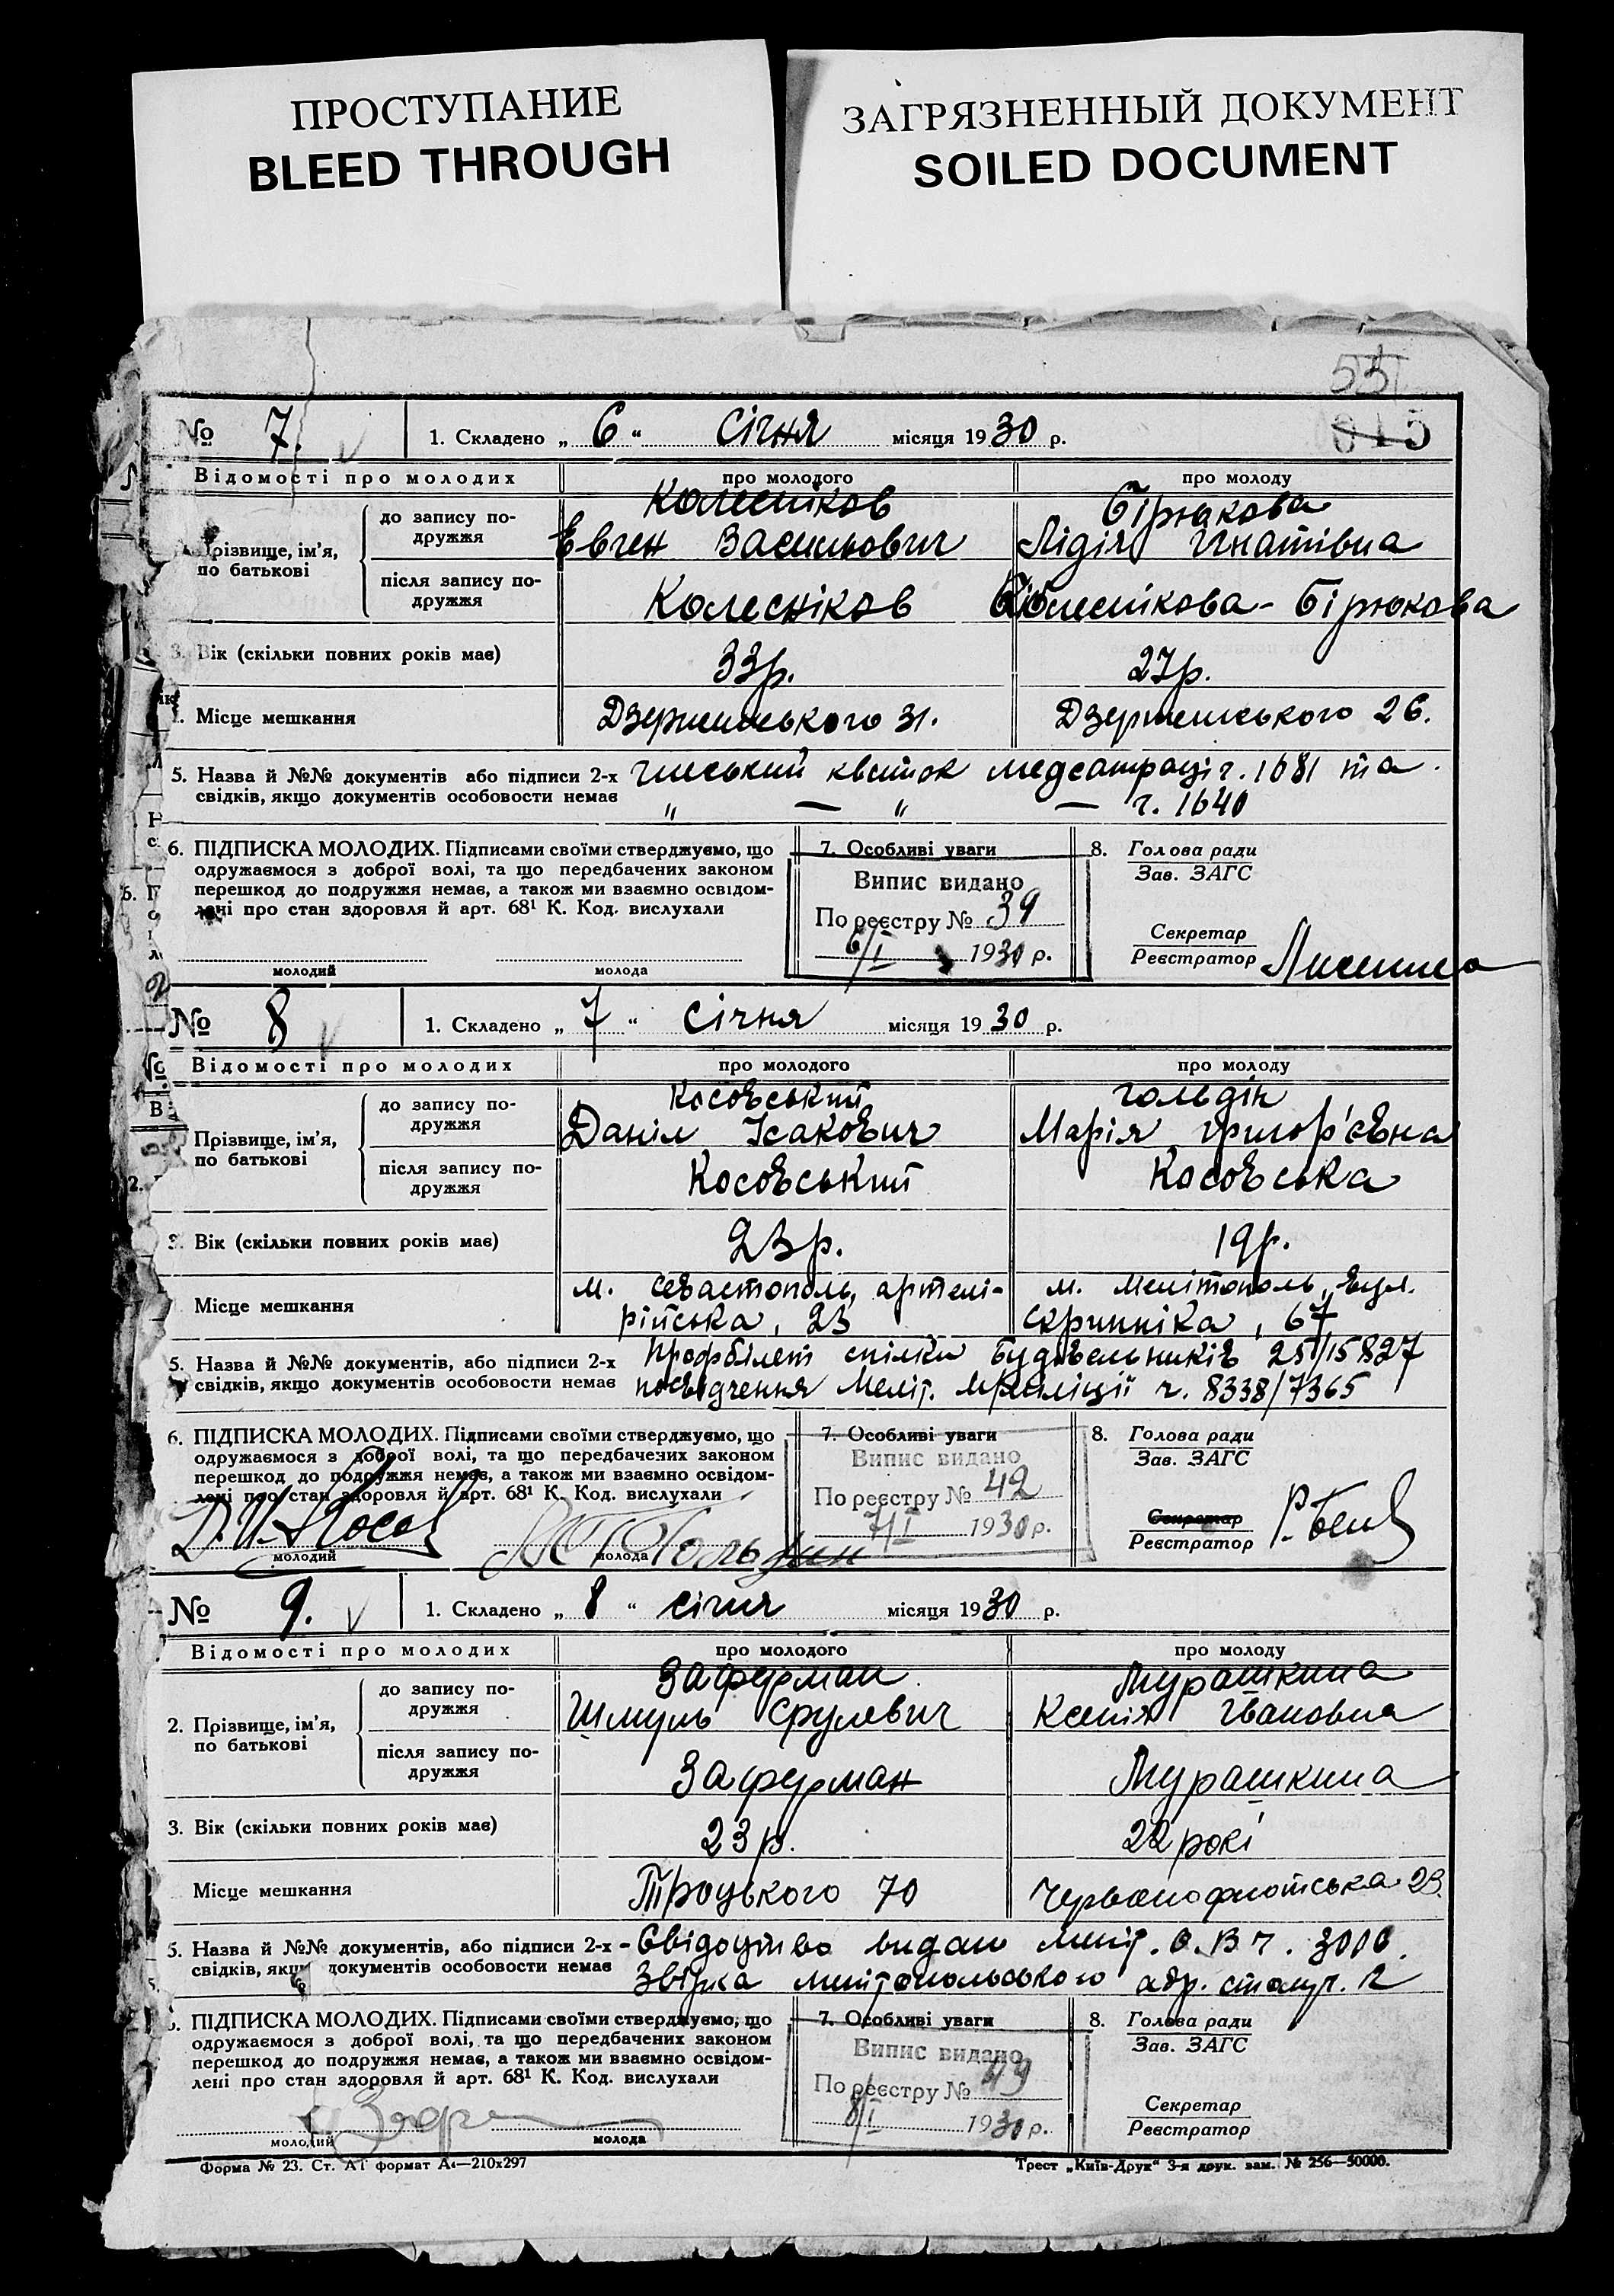 ПРОСТУПАНИЕ
BLEED THROUGH
ЗАГРЯЗНЕННЫЙ ДОКУМЕНТ
SOILED DOCUMENT
55
015
№ 7. 1. Складено „ 6 “ Січня місяця 19 30 р.
Відомості про молодих про молодого про молоду
Прізвище, ім’я, по батькові
до запису по-дружжя
Колесніков Бірюкова
Евген Васильович Лідія Ігнатівна
після запису по-дружжя
Колесніков Колеснікова - Бірюкова
3. Вік (скільки повних років має) 33р. 27р.
Місце мешкання Дзержинського 31. Дзержинського 26.
5. Назва й №№ документів або підписи 2-х квиток ч. 1681 та
свідків, якщо документів особовости немає „ — „ — ч. 1640
6. ПІДПИСКА МОЛОДИХ. Підписами своїми стверджуємо, що
одружаємося з доброї волі, та що передбачених законом
перешкод до подружжя немає, а також ми взаємно освідом-
лені про стан здоровля й арт. 68¹ К. Код. вислухали
молодий молода
7. Особливі уваги
Випис видано
По реєстру № 39
6/I 1930 р.
8. Голова ради
Зав. ЗАГС
Секретар
Реєстратор
№ 8 1. Складено „ 7 “ Січня місяця 19 30 р.
Відомості про молодих про молодого про молоду
Прізвище, ім’я, по батькові
до запису по-дружжя
Косовський Гольдін
Даніл Ісакович Марія Григор'євна
після запису по-дружжя
Косовський Косовська
3. Вік (скільки повних років має) 23р. 19р.
Місце мешкання
м. Севастополь, артелі- м. Мелітополь, вул.
рійська, 23 Скрипніка, 67
5. Назва й №№ документів, або підписи 2-х Профбілет спілки Будівельників 25/15827
свідків, якщо документів особовости немає посвідчення Меліт. міліції ч. 8338/7365
6. ПІДПИСКА МОЛОДИХ. Підписами своїми стверджуємо, що
одружаємося з доброї волі, та що передбачених законом
перешкод до подружжя немає, а також ми взаємно освідом-
лені про стан здоровля й арт. 68¹ К. Код. вислухали
молодий молода
7. Особливі уваги
Випис видано
По реєстру № 42
7/I 1930 р.
8. Голова ради
Зав. ЗАГС
Секретар
Реєстратор
№ 9. 1. Складено „ 8 “ січня місяця 19 30 р.
Відомості про молодих про молодого про молоду
2. Прізвище, ім’я, по батькові
до запису по-дружжя
Зафурман Мурашкина
Шмуль Срулевич Ксенія Івановна
після запису по-дружжя
Зафурман Мурашкина
3. Вік (скільки повних років має) 23 р. 22 рокі
Місце мешкання Троцького 70 Червонофлотська 23.
5. Назва й №№ документів, або підписи 2-х - Свідоцтво видан Меліт. О.В ч. 3000.
свідків, якщо документів особовости немає Звірка мелітопольського адр. стану
ПІДПИСКА МОЛОДИХ. Підписами своїми стверджуємо, що
одружаємося з доброї волі, та що передбачених законом
перешкод до подружжя немає, а також ми взаємно освідом-
лені про стан здоровля й арт. 68¹ К. Код. вислухали
молодий молода
7. Особливі уваги
Випис видано
По реєстру № 49
8/I 1930 р.
8. Голова ради
Зав. ЗАГС
Секретар
Реєстратор
Форма № 23. Ст. АІ формат А₄—210х297
Трест „Київ-Друк“ 3-я друк. зам. № 256—50000.